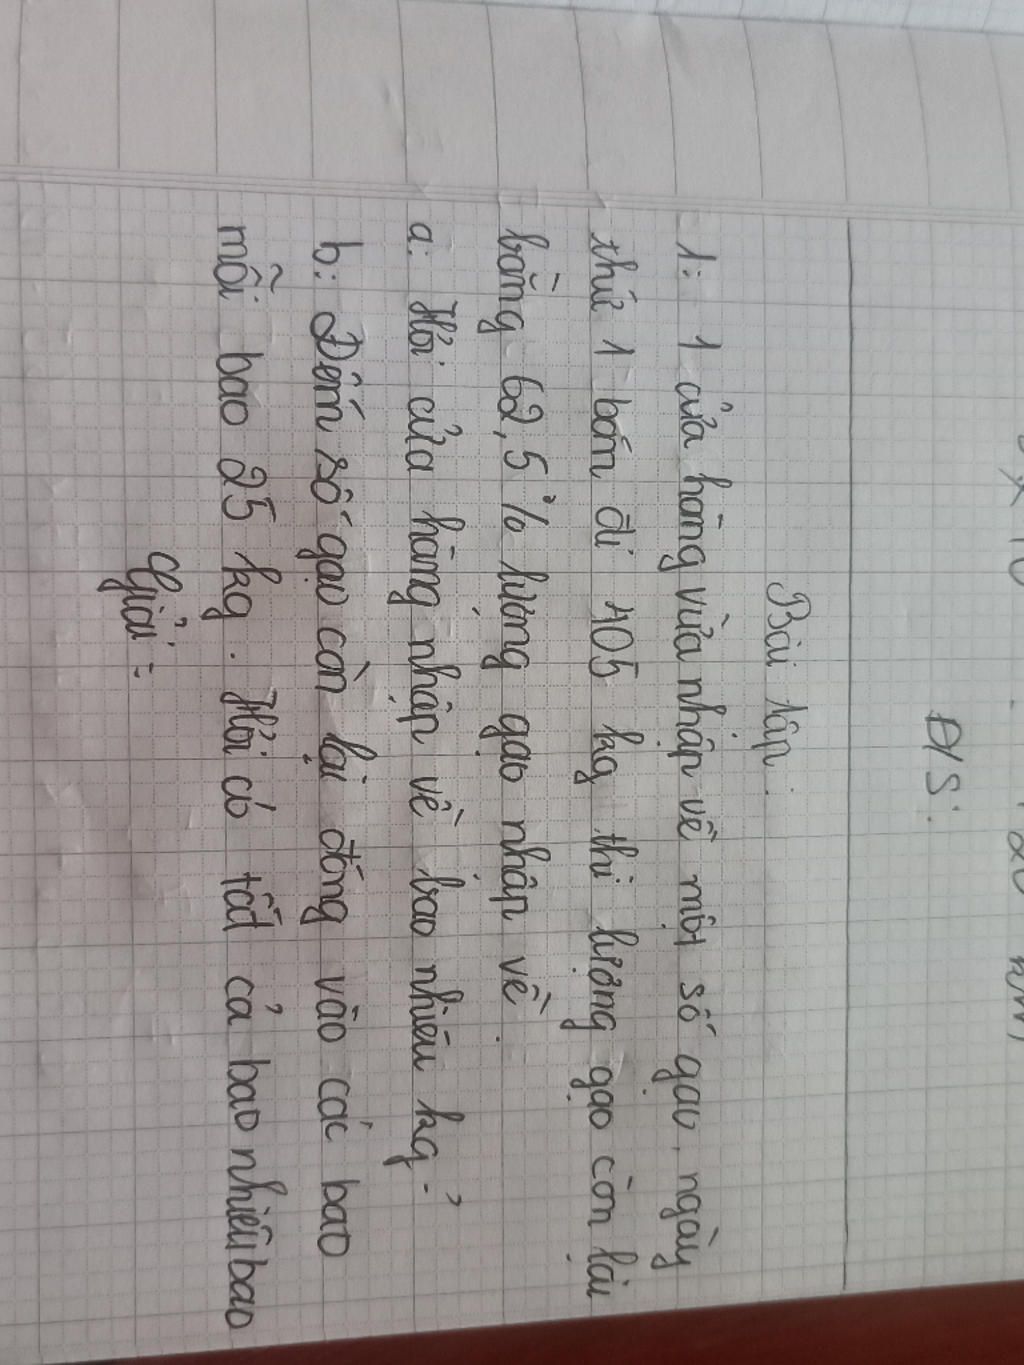 Đ/S:
Bài tập.
1: 1 cửa hàng vừa nhập về một số gạo, ngày
thứ 1 bán đi 405 kg thì lượng gạo còn lại
bằng 62,5% lượng gạo nhập về.
a: Hỏi cửa hàng nhập về bao nhiêu kg?
b: Đếm số gạo còn lại đóng vào các bao
mỗi bao 25 kg. Hỏi có tất cả bao nhiêu bao
Giải: